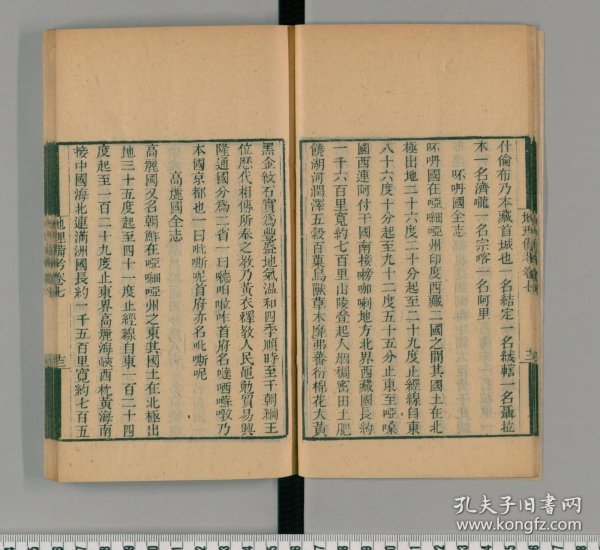 什倫布乃本藏首城也一名結定一名絨轄一名聶拉
木一名濟嚨一名宗喀一名阿里
呸呥國全志
呸呥國在啞細啞州印度西藏二國之間其國土在北
極出地二十六度二十分起至二十九度止經線自東
八十六度十分起至九十二度五十五分止東至啞嗓
國西連阿付干國南接嗙咖喇地方北界西藏國長約
一千六百里寬約七百里山陵疊起人烟稠密田土肥
饒湖河潤澤五穀百菓鳥獸草木靡弗蕃衍棉花大黃
黑金紋石實為豐盛地氣溫和四季順時至于朝綱王
位歷代相傳所奉之教乃黃衣釋教人民勤勉貿易興
隆通國分為二省一曰
首府名
乃
本國京都也一曰吡嘶呢首府亦名吡嘶呢
高麗國全志
高麗國又名朝鮮在啞細啞州之東其國土在北極出
地三十五度起至四十一度止經線自東一百二十四
度起至一百二十九度止東界高麗海峽西枕黃海南
接中國海北連滿洲國長約一千五百里寬約七百五
地理備考卷七
孔夫子旧书网
www.kongfz.com